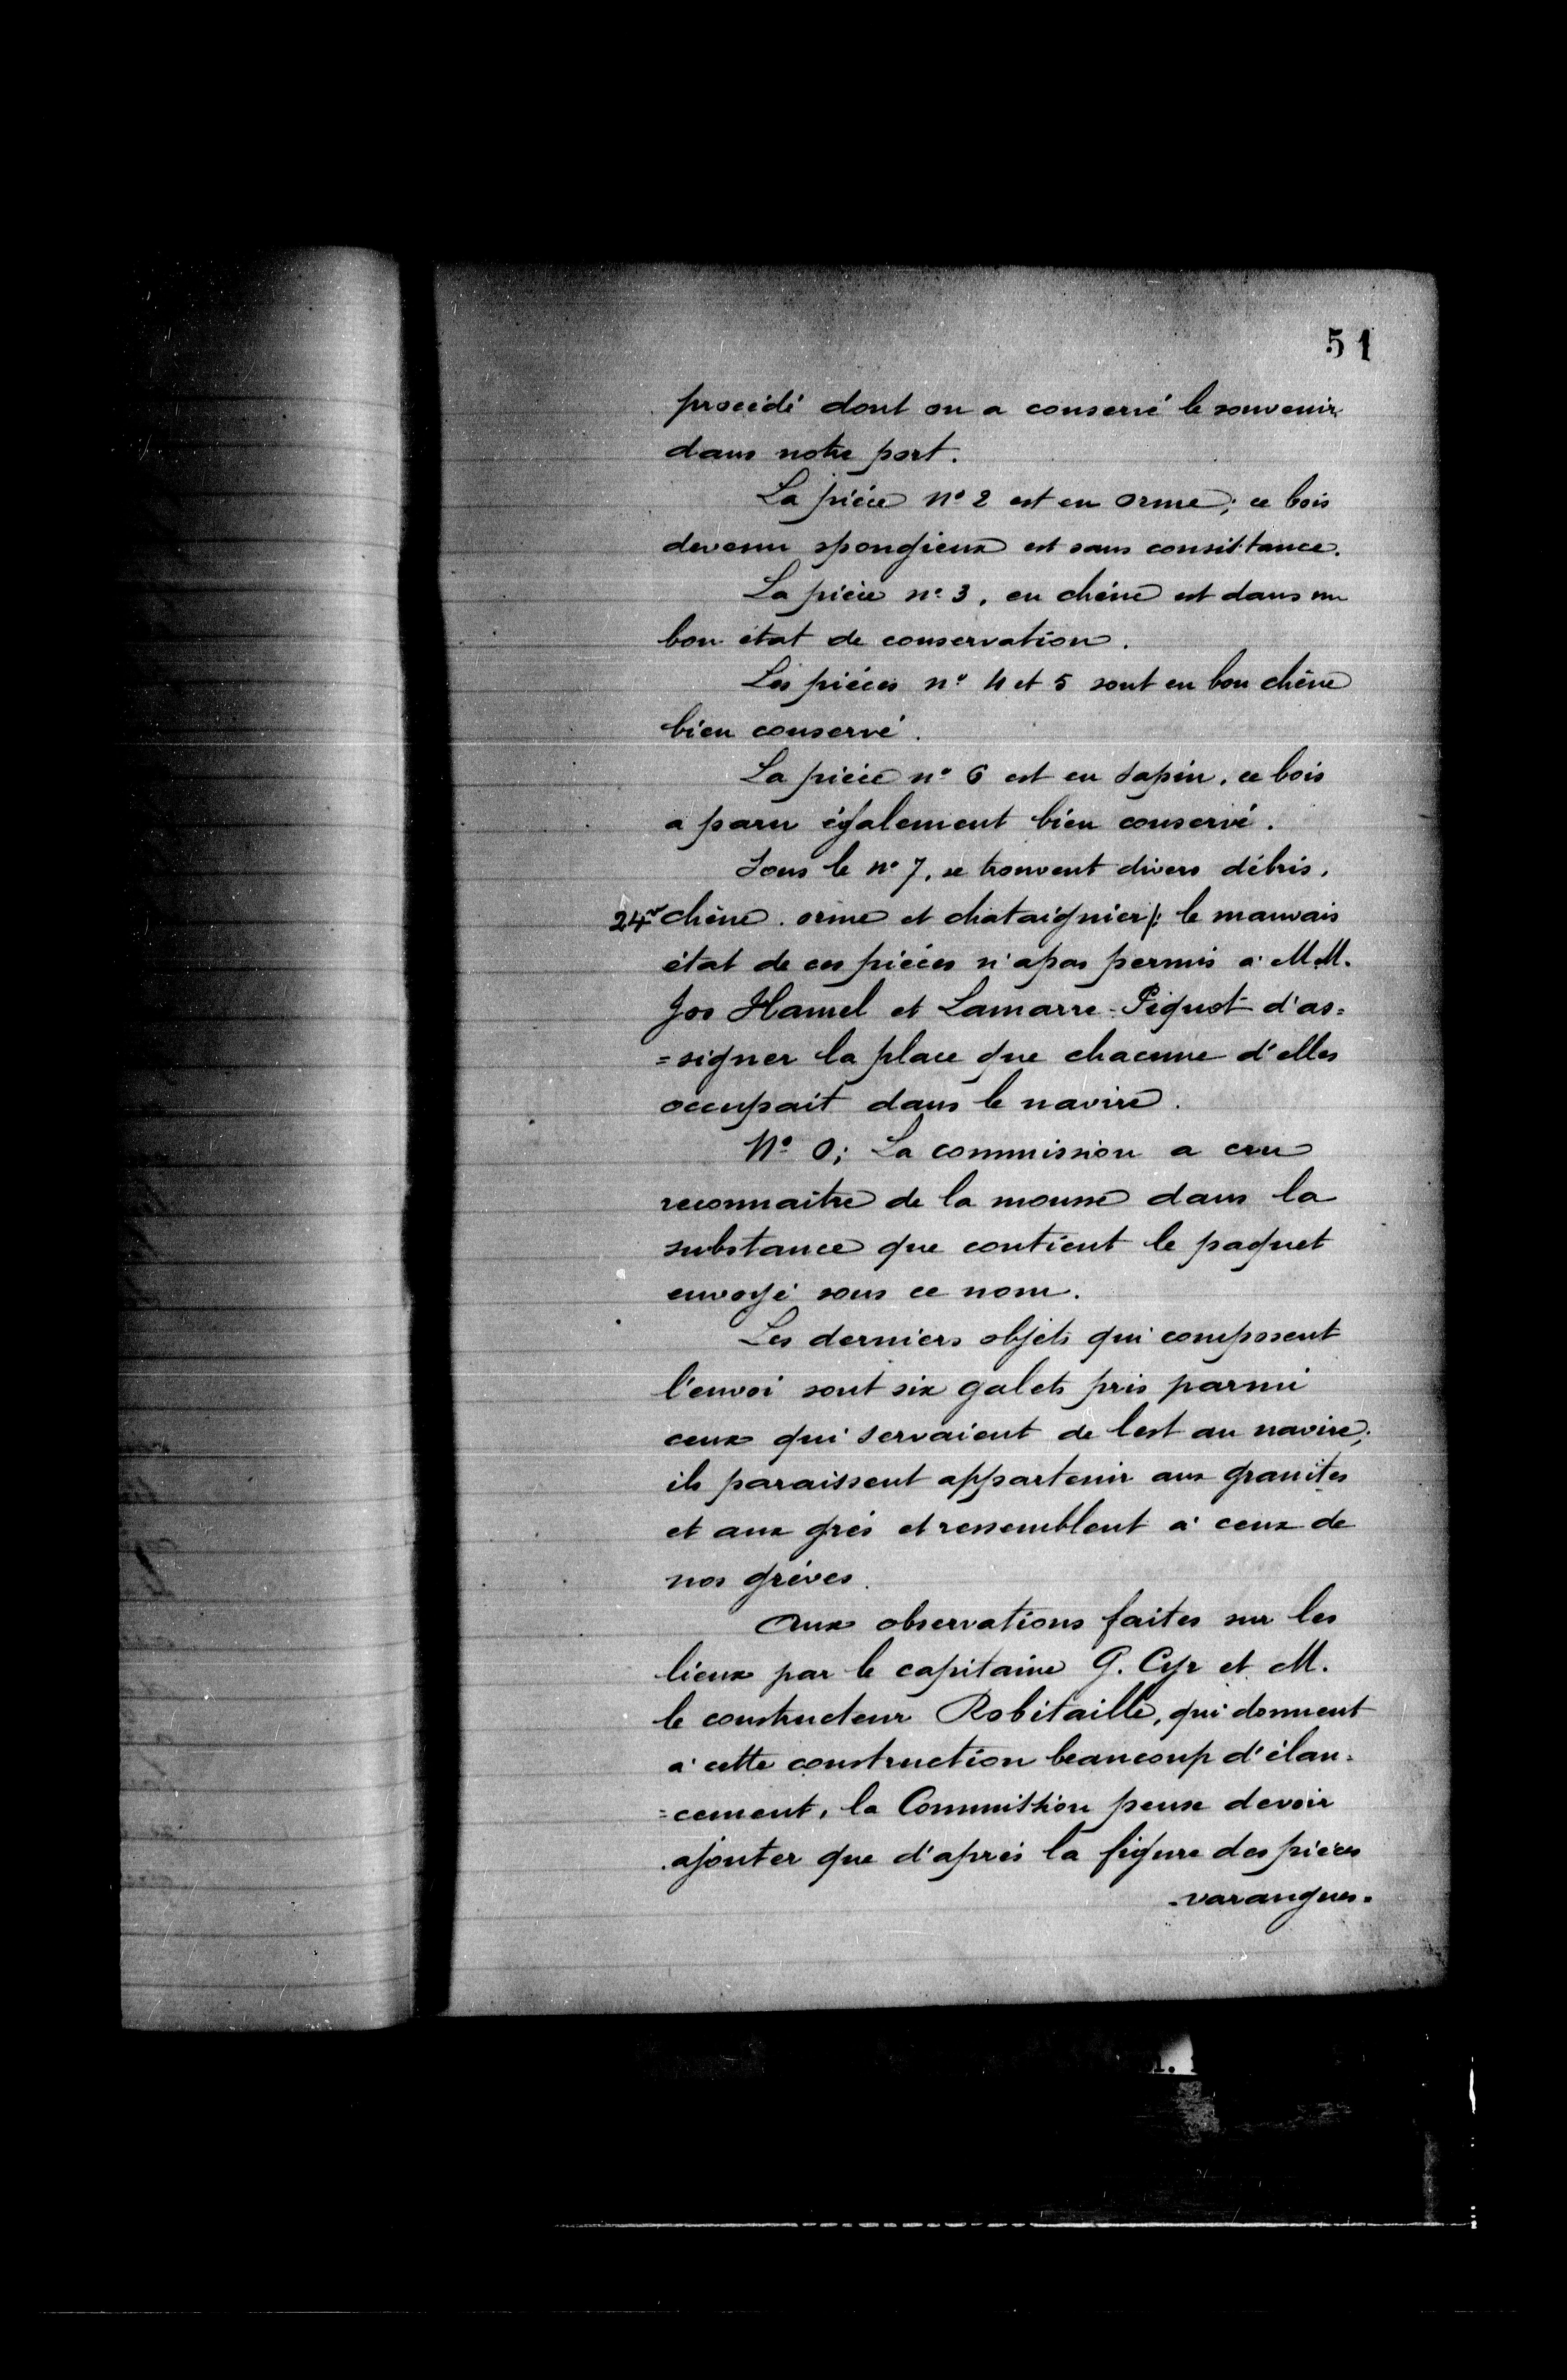 51
procédé dont on a conservé le souvenir
dans notre port.
La pièce n° 2 est en orme; ce bois
devenu spongieux est sans consistance.
La pièce n° 3, en chêne est dans un
bon état de conservation.
Les pièces n° 4 et 5 sont en bon chêne
bien conservé.
La pièce n° 6 est en sapin, ce bois
a paru également bien conservé.
Sous le n° 7, se trouvent divers débris,
24r chêne, orme et chataignier; le mauvais
état de ces pièces n'a pas permis à MM.
Jos Hamel et Lamarre-Piquot d'as=
=signer la place que chacune d'elles
occupait dans le navire.
N° 0; La commission a cru
reconnaitre de la mousse dans la
substance que contient le paquet
envoyé sous ce nom.
Les derniers objets qui composent
l'envoi sont six galets pris parmi
ceux qui servaient de lest au navire;
ils paraissent appartenir aux granites
et aux grés et ressemblent à ceux de
nos grèves.
Aux observations faites sur les
lieux par le capitaine G. Cyr et M.
le constructeur Robitaille, qui donnent
à cette construction beaucoup d'élan=
=cement, la Commission pense devoir
ajouter que d'après la figure des pièces
-varangues-